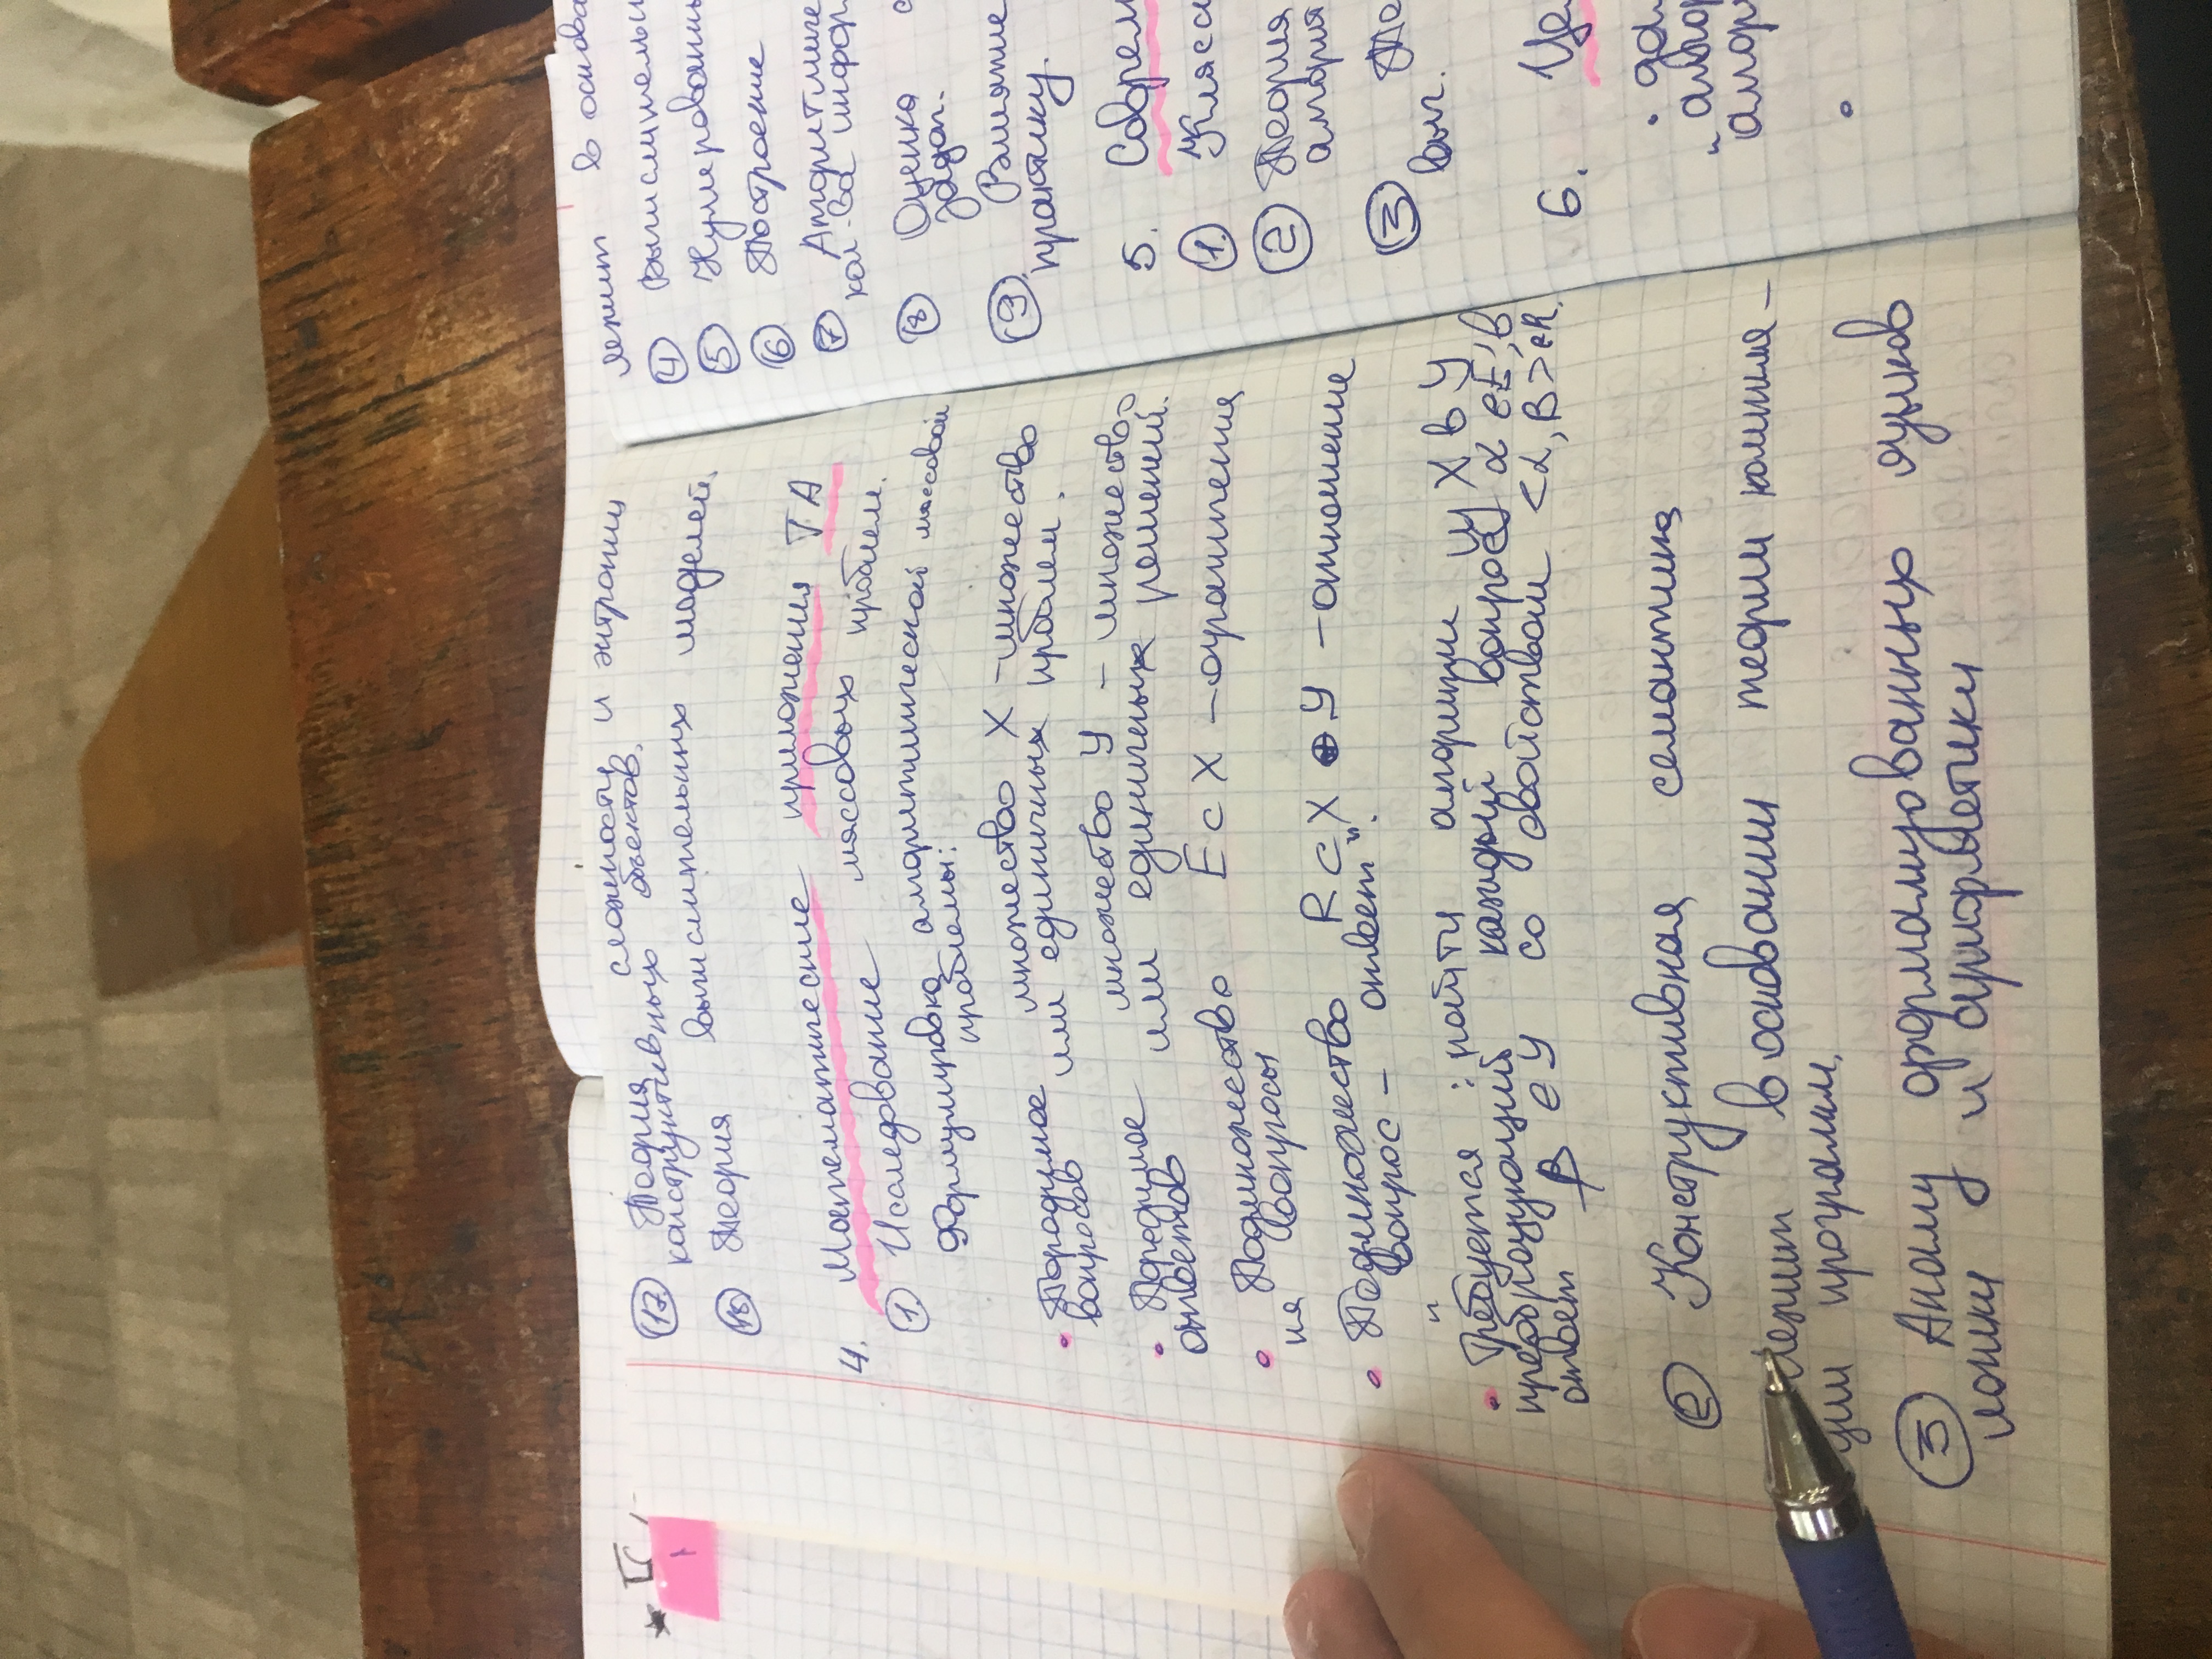 17. Теория сложности и энтропии
конструктивных объектов.
18. Теория вычислительных моделей.
4. Математические приложения ТА
1. Исследование массовых проблем.
Формулировка алгоритмической массовой
проблемы:
• Породимое множество X – множество
вопросов или единичных проблем.
• Породимое множество Y – множество
ответов или единичных решений.
• Подмножество E ⊂ X – ограничения
на вопросы
• Подмножество R ⊂ X ⊕ Y – отношение
"вопрос – ответ".
• Требуется: найти алгоритм из X в Y
преобразующий каждый вопрос α ∈ E, в
ответ β ∈ Y со свойством <α, β> ∈ R.
2 Конструктивная семантика
Лежит в основании теории компиля-
ции программ.
3 Анализ формализованных языков
логики и арифметики
лежит в основа
4 Вычислительн
5 Нумерованны
6 Построение
7 Алгоритмиче
кол-ва информ
8 Оценка с
задач.
9. Влияние
практику.
5. Соврем
1. Класси
2 Теория
алгорит
3 Те
выч.
6. Це
• дал
"алгор
алгор
•